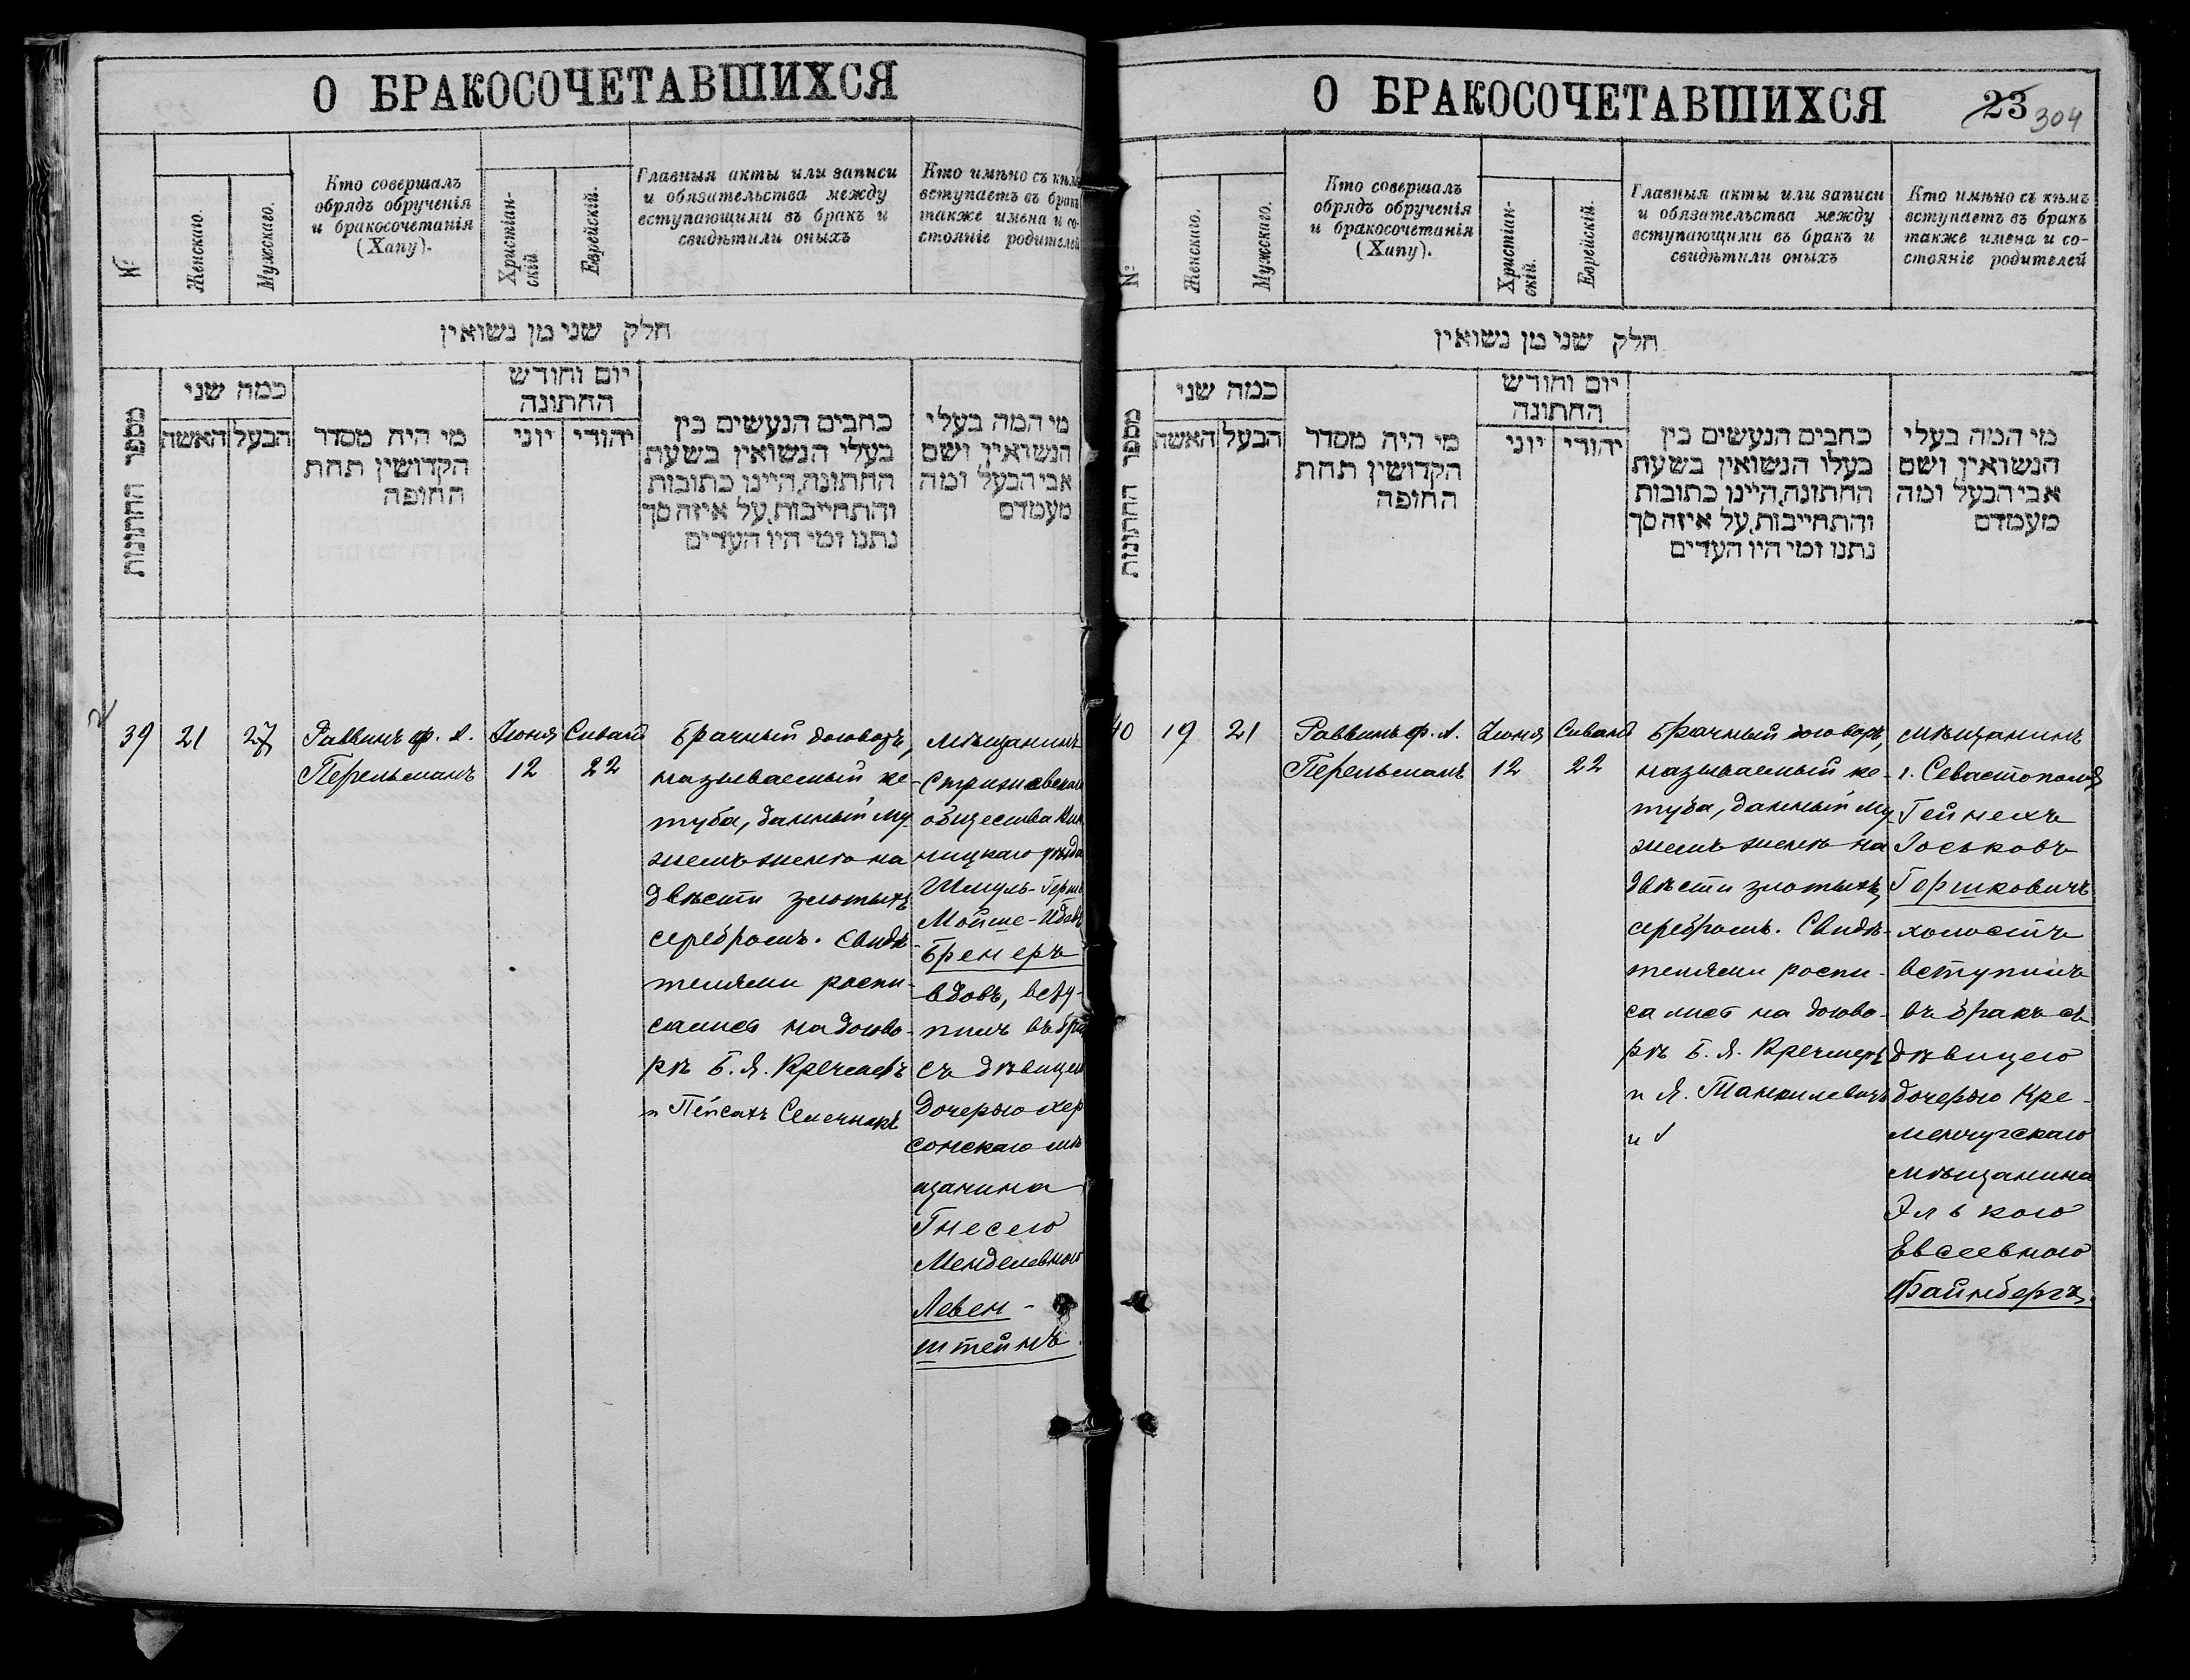 О БРАКОСОЧЕТАВШИХСЯ
№
Женскаго.
Мужскаго.
Кто совершалъ
обрядъ обрученія
и бракосочетанія
(Хапу).
Христіан-
скій.
Еврейскій.
Главныя акты или записи
и обязательства между
вступающими въ бракъ и
свидѣтили оныхъ
Кто имѣно съ кѣмъ
вступаетъ въ бракъ
также имена и со-
стояніе родителей
חלק שני מן נשואין
מספר החתונות
כמה שני
האשה
הבעל
מי היה מסדר
הקדושין תחת
החופה
יום וחודש
החתונה
יוני
יהודי
כתבים הנעשים בין
בעלי הנשואין בשעת
החתונה, היינו כתובות
והתחייבות, על איזה סך
נתנו ומי היו העדים
מי המה בעלי
הנשואין ושם
אבי הבעל ומה
מעמדם
39
21
27
Раввинъ ф. А.
Перельманъ
Июня
12
Сивана
22
Брачный договоръ,
называемый ке-
туба, данный му-
жемъ женѣ на
двѣсти злотыхъ
серебромъ. Свидѣ-
телями распи-
сались на догово-
рѣ Б. Я. Кречмеръ
и Пейсахъ
мѣщанинъ
общества Вин-
ницкаго уѣзда
Шмуль-Герш
Мойше-
Бренеръ
вдовъ, всту-
пилъ въ бракъ
съ дѣвицею
дочерью хер-
сонскаго мѣ-
щанина
Гнесею
Менделевною
Левен-
штейнъ
О БРАКОСОЧЕТАВШИХСЯ
23
304
№
Женскаго.
Мужскаго.
Кто совершалъ
обрядъ обрученія
и бракосочетанія
(Хапу).
Христіан-
скій.
Еврейскій.
Главныя акты или записи
и обязательства между
вступающими въ бракъ и
свидѣтили оныхъ
Кто имѣно съ кѣмъ
вступаетъ въ бракъ
также имена и со-
стояніе родителей
חלק שני מן נשואין
מספר החתונות
כמה שני
האשה
הבעל
מי היה מסדר
הקדושין תחת
החופה
יום וחודש
החתונה
יוני
יהודי
כתבים הנעשים בין
בעלי הנשואין בשעת
החתונה, היינו כתובות
והתחייבות, על איזה סך
נתנו ומי היו העדים
מי המה בעלי
הנשואין ושם
אבי הבעל ומה
מעמדם
40
19
21
Раввинъ ф. А.
Перельманъ
Июня
12
Сивана
22
Брачный договоръ,
называемый ке-
туба, данный му-
жемъ женѣ на
двѣсти злотыхъ
серебромъ. Свидѣ-
телями распи-
сались на догово-
рѣ Б. Я. Кречмеръ
и Я. Танкилевичъ
и
мѣщанинъ
г. Севастополя
Гейнехъ
Іоськовъ
Гершковичъ
холостъ
вступилъ
въ бракъ съ
дѣвицею
дочерью Кре-
менчугскаго
мѣщанина
Элькою
Евсеевною
Файнбергъ.